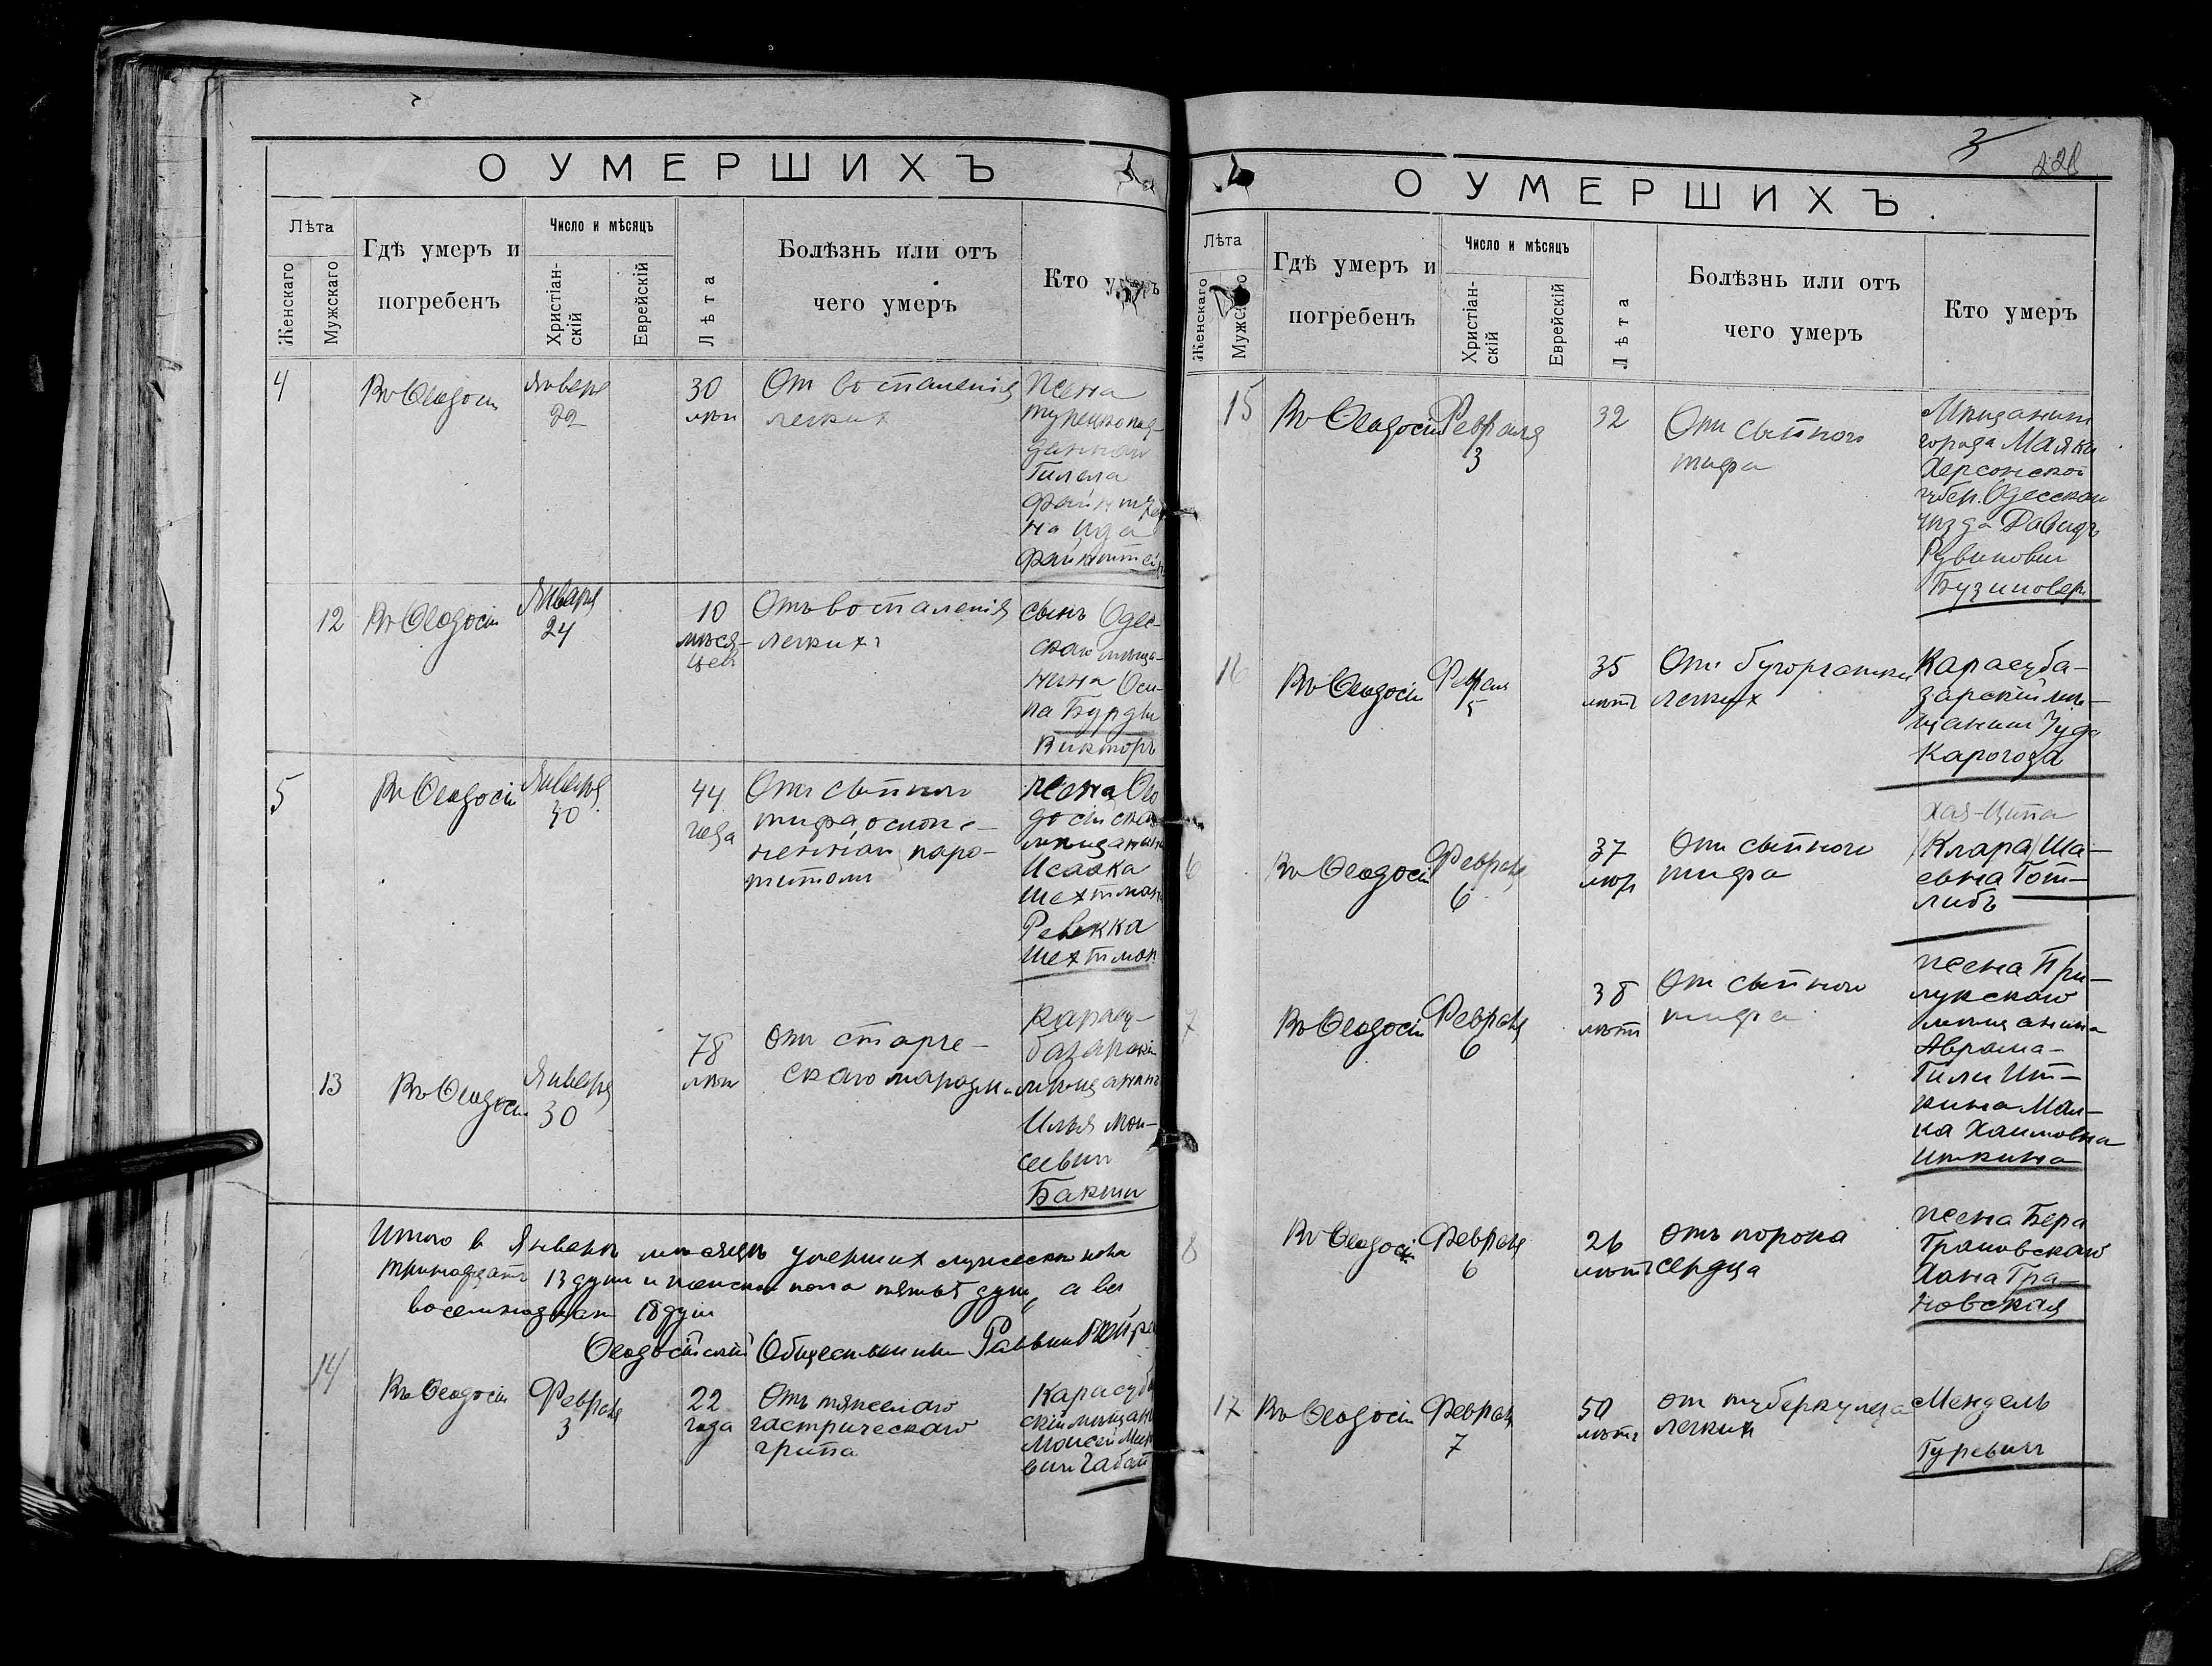 О УМЕРШИХЪ
Лѣта
Женскаго
Мужскаго
Гдѣ умеръ и
погребенъ
Число и мѣсяцъ
Христіан-
скій
Еврейскій
Лѣта
Болѣзнь или отъ
чего умеръ
Кто умеръ
4
Въ Ѳеодосіи
Января
22
30
лѣтъ
От воспаленія
легких
Жена
турецкопод-
даннаго
Гилела
Файнштей
на Ида
Файнштейн
12
Въ Ѳеодосіи
Января
24
10
мѣся-
цев
Отъ воспаленія
легких
сынъ Одес-
скаго мѣща-
нина Оси-
па Бурды
Викторъ
5
Въ Ѳеодосіи
Января
30
44
года
От сыпного
тифа, ослож-
неннаго паро-
титом
жена Ѳео
досійска
мѣщанина
Исаака
Шехтман
Ревекка
Шехтман
13
Въ Ѳеодосіи
Января
30
78
лѣт
От старче-
скаго маразма
Карасу-
базарскій
мѣщанинъ
Илья Мои-
сеевич
Бакши
Итого в Январѣ мѣсяцѣ умерших мужеска пола
тринадцать 13 душ и женска пола пять 5 душ, а всѣ
восемнадцать 18 душ
Ѳеодосійскій Общественный Раввин
14
Въ Ѳеодосіи
Февраля
3
22
года
Отъ тяжелаго
гастрическаго
грипа
Карасуб
скій мѣщан
Моисей
вич Габай
3
228
О УМЕРШИХЪ.
Лѣта
Женскаго
Мужскаго
Гдѣ умеръ и
погребенъ
Число и мѣсяцъ
Христіан-
скій
Еврейскій
Лѣта
Болѣзнь или отъ
чего умеръ
Кто умеръ
15
Въ Ѳеодосіи
Февраля
3
32
От сыпного
тифа
Мѣщанин
города Маяки
Херсонской
губер. Одесскаго
уѣзда Давидъ
Рувинович
Бузиновер
16
Въ Ѳеодосіи
Февраля
5
35
лѣтъ
От бугорчатки
легких
Карасуба-
зарскій мѣ-
щанин Іуда
Карогоза
6
Въ Ѳеодосіи
Февраля
6
37
лѣт
От сыпного
тифа
Хая-Ципа
(Клара) Ша-
евна Гот-
либъ
7
Въ Ѳеодосіи
Февраля
6
38
лѣтъ
От сыпного
тифа
жена При-
лукскаго
мѣщанина
Аврама-
Гили Ит-
кина Мал-
ка Хаимовна
Иткина
8
Въ Ѳеодосіи
Февраля
6
26
лѣтъ
Отъ порока
сердца
жена Бера
Грановскаго
Хана Гра-
новская
17
Въ Ѳеодосіи
Февраля
7
50
лѣтъ
от туберкулеза
легких
Мендель
Гуревич